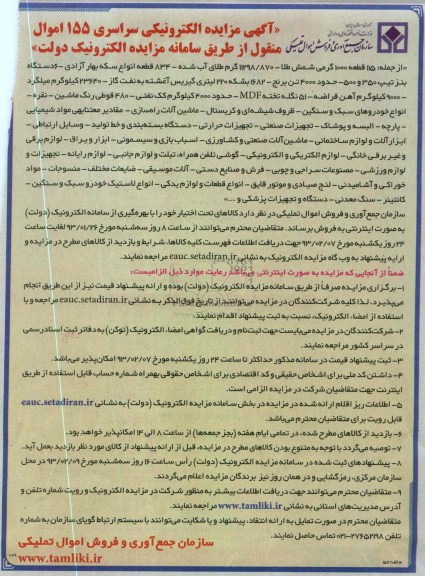 سازمان جمع‌آوری و فروش اموال تملیکی
«آگهی مزایده الکترونیکی سراسری ۱۵۵ اموال
منقول از طریق سامانه مزایده الکترونیک دولت»
«از جمله: ۱۱۵ قطعه ۱۰۰۰ گرمی شمش طلا - ۱۱۲۹۸/۸۷۰ گرم طلای آب شده - ۸۳۴ قطعه انواع سکه بهار آزادی - ۶ دستگاه
بنز تیپ ۳۵۰ و ۵۰۰ - حدود ۴۰۰۰ تن برنج - ۱۶۸۲ بشکه ۲۲۰ لیتری گیریس آغشته به نفت گاز - ۲۳۶۴۰ کیلوگرم میلگرد
- ۹۰۰۰ کیلوگرم آهن قراضه - ۵۱ نگله تخته MDF - حدود ۴۰۰۰ کیلوگرم کک نفتی - ۴۸۰ قوطی رنگ ماشین - نقره -
انواع خودروهای سبک و سنگین - ظروف شیشه‌ای و کریستال - ماشین آلات راه‌سازی - مقادیر معتنابهی مواد شیمیایی
- پارچه - البسه و پوشاک - تجهیزات صنعتی - تجهیزات حرارتی - دستگاه بسته‌بندی و خط تولید - وسایل ارتباطی -
ابزارآلات و لوازم ساختمانی - ماشین آلات صنعتی و کشاورزی - اسباب بازی و سیسمونی - ابزار و یراق - لوازم برقی
و غیر برقی خانگی - لوازم الکتریکی و الکترونیکی - گوشی تلفن همراه، تبلت و لوازم جانبی - لوازم رایانه - تجهیزات و
لوازم ورزشی - مصنوعات سراجی و چوبی - فرش و صنایع دستی - آلات موسیقی - ضایعات مختلف - منسوجات - مواد
خوراکی و آشامیدنی - لنج صیادی و موتور قایق - انواع قطعات و لوازم یدکی - انواع لاستیک خودرو سبک و سنگین -
کانتینر - سنگ معدنی - دستگاه و تجهیزات پزشکی و ....»
سازمان جمع آوری و فروش اموال تملیکی در نظر دارد کالاهای تحت اختیار خود را با بهره‌گیری از سامانه الکترونیک (دولت)
به صورت اینترنتی به فروش برساند. متقاضیان محترم می‌توانند از ساعت ۸ روز سه‌شنبه مورخ ۹۳/۰۱/۲۶ لغایت ساعت
۲۴ روز یکشنبه مورخ ۹۳/۰۲/۰۷ جهت دریافت اطلاعات فهرست کلیه کالاها، شرایط و بازدید از کالاهای مطرح در مزایده و
ارایه پیشنهاد به وب گاه مزایده الکترونیک به نشانی eauc.setadiran.ir مراجعه نمایند.
ضمناً از آنجایی که مزایده به صورت اینترنتی می‌باشد رعایت موارد ذیل الزامیست:
۱- برگزاری مزایده صرفاً از طریق سامانه مزایده الکترونیک (دولت) بوده و ارائه پیشنهاد قیمت نیز از این طریق انجام
می‌پذیرد. لذا کلیه شرکت‌کنندگان در مزایده می‌توانند از تاریخ فوق‌الذکر به نشانی eauc.setadiran.ir مراجعه و با
استفاده از امضاء الکترونیک، نسبت به ثبت پیشنهاد اقدام نمایند.
۲- شرکت‌کنندگان در مزایده می‌بایست جهت ثبت‌نام و دریافت گواهی امضاء الکترونیک (توکن) به دفاتر ثبت اسناد رسمی
در سراسر کشور مراجعه نمایند.
۳- ثبت پیشنهاد قیمت در سامانه مذکور حداکثر تا ساعت ۲۴ روز یکشنبه مورخ ۹۳/۰۲/۰۷ امکان‌پذیر می‌باشد.
۴- داشتن کد ملی برای اشخاص حقیقی و کد اقتصادی برای اشخاص حقوقی بهمراه شماره حساب قابل استفاده از طریق
اینترنت جهت متقاضیان شرکت در مزایده الزامی است.
۵- اطلاعات ریز اقلام ارائه شده در مزایده در بخش سامانه مزایده الکترونیک (دولت) به نشانی eauc.setadiran.ir
قابل رویت برای متقاضیان محترم می‌باشد.
۶- بازدید از کالاهای مطرح شده، در تمامی ایام هفته (بجز جمعه‌ها) از ساعت ۸ الی ۱۴ امکانپذیر خواهد بود.
۷- توصیه می‌گردد با توجه به متنوع بودن کالاهای مطرح در مزایده، قبل از ارائه پیشنهاد از کالای مورد نظر بازدید بعمل آید.
۸- پیشنهادهای ثبت شده در سامانه مزایده الکترونیک (دولت) رأس ساعت ۱۶ روز سه‌شنبه مورخ ۹۳/۰۲/۰۹ در محل
سازمان مرکزی، رمزگشایی و در همان روز نیز برندگان مزایده اعلام می‌گردند.
۹- متقاضیان محترم می‌توانند جهت دریافت اطلاعات بیشتر به منظور شرکت در مزایده الکترونیک و رویت شماره تلفن و
آدرس مدیریت‌های استانی به نشانی www.tamliki.ir مراجعه نمایند.
متقاضیان محترم در صورت تمایل به ارائه انتقاد، پیشنهاد و یا شکایت می‌توانند با سیستم ارتباط گویای سازمان به شماره
تلفن ۲۷۶۵۲۱۹۸-۰۲۱ تماس حاصل نمایند.
سازمان جمع‌آوری و فروش اموال تملیکی
www.tamliki.ir